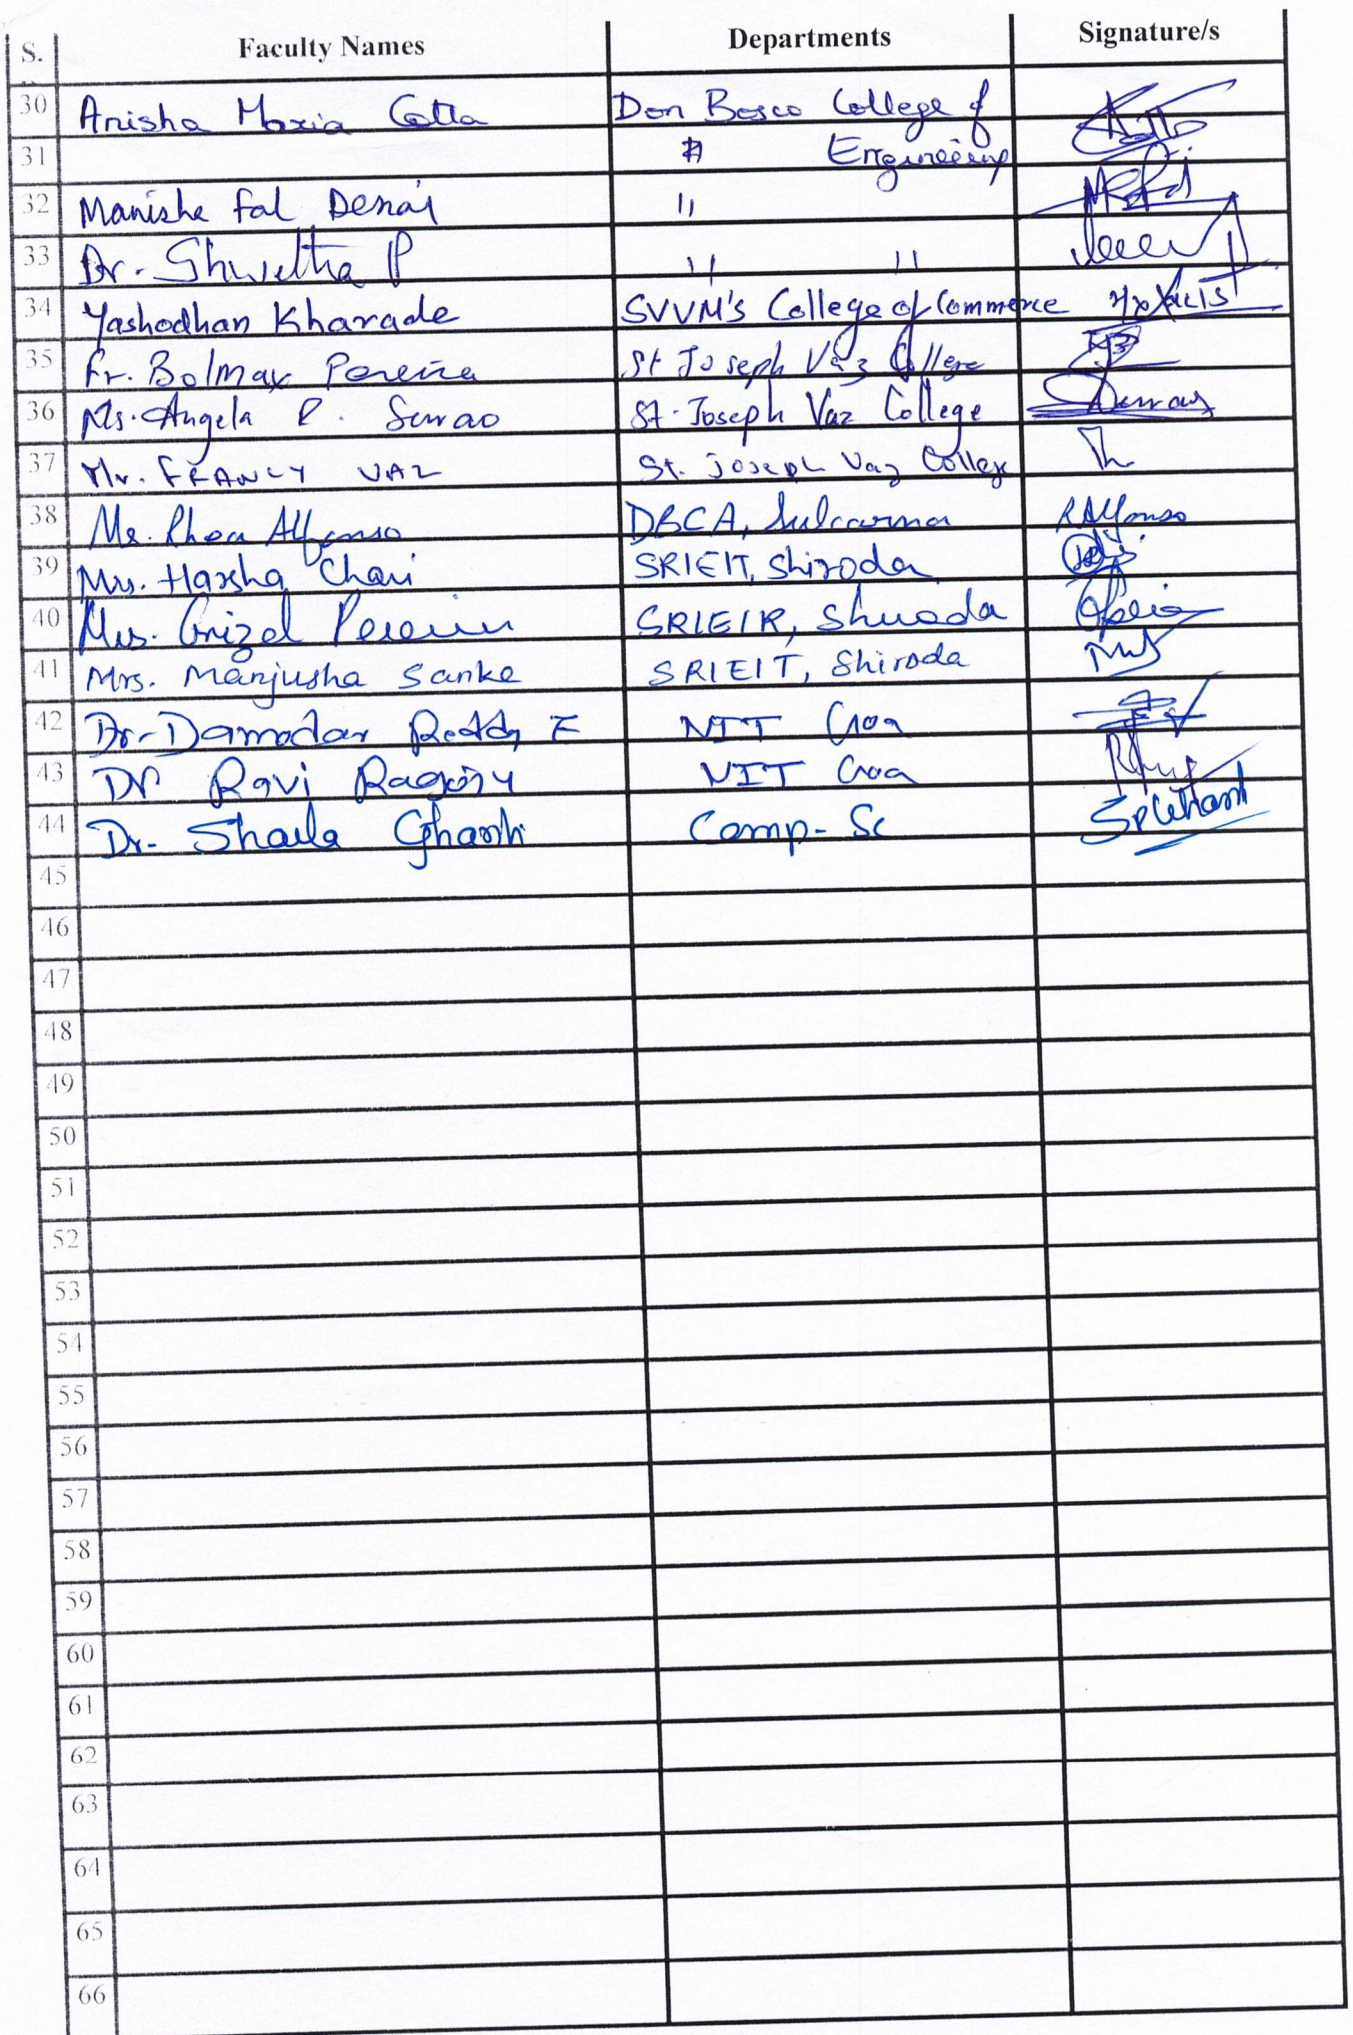 S. Faculty Names Departments Signature/s
30 Anisha Maria Cotta Don Bosco College of
31 Engineering
32 Manisha Fal Desai 11
33 Dr. Shwetha P 11 11
34 Yashodhan Kharade SVVM's College of Commerce
35 Fr. Bolmax Pereira St Joseph Vaz College
36 Ms. Angela R. Serrao St. Joseph Vaz College
37 Mr. FRANCY VAZ St. Joseph Vaz College
38 Ms. Rhea Alfonso DBCA, RAlfonso
39 Mrs. Harsha Chari SRIEIT, Shiroda
40 Mrs. Grizel Pereira SRIEIR, Shiroda
41 Mrs. Manjusha Sanke SRIEIT, Shiroda
42 Dr. Damodar Reddy E NIT Goa
43 Dr Ravi Ragoju NIT Goa
44 Dr. Shaila Ghanti Comp- Sc
45
46
47
48
49
50
51
52
53
54
55
56
57
58
59
60
61
62
63
64
65
66